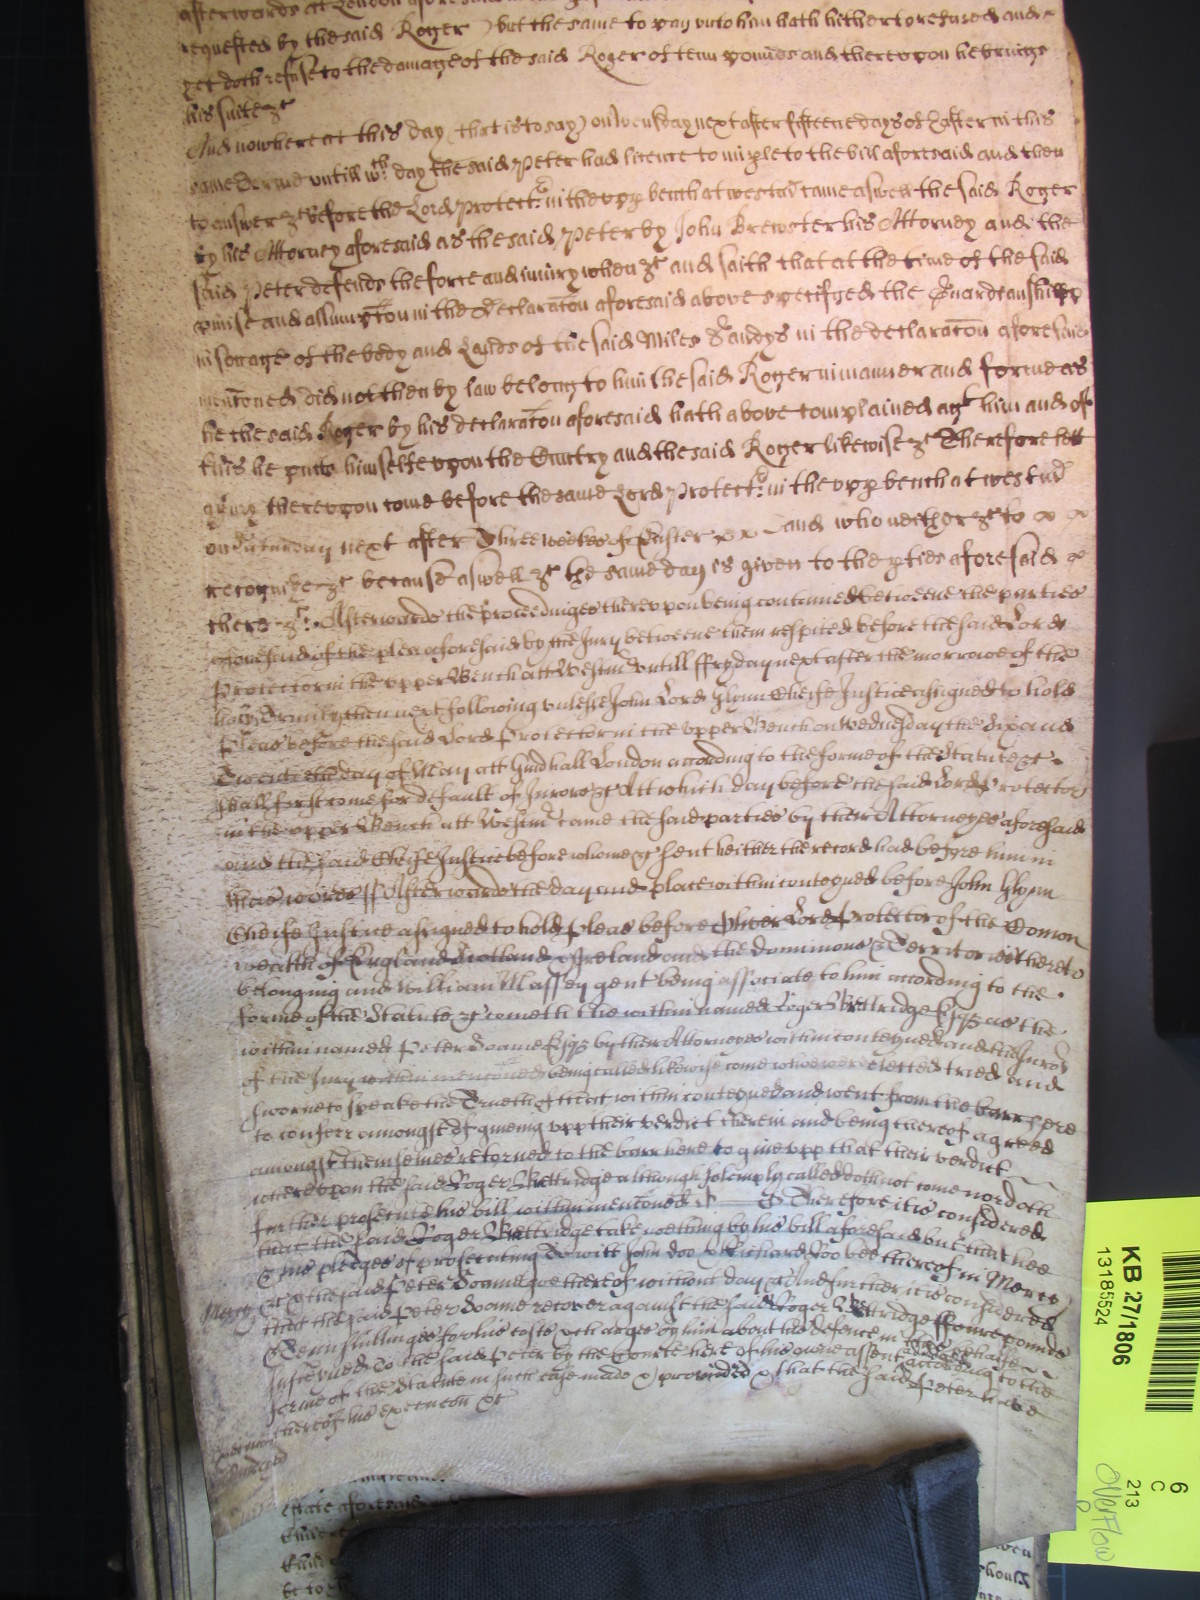 afterwards at London aforesaid
requested by the said Roger ) but the same to pay unto him hath hitherto refused and
yet doth refuse to the damage of the said Roger of tenn pounds and thereupon he brings
his suite &c
And now here at this day (that is to say) on Wensday next after fifteene days of Easter in this
same Terme untill wch day the said Peter had licence to imple to the bill aforesaid and then
to answer &c before the Lord Protectr in the upp bench at westmr came aswell the said Roger
by his Attorney aforesaid as the said Peter by John Brewster his Attorney and the
said Peter defends the force and iniury when &c and saith that at the time of the said
pmise and assumpton in the declaraton aforesaid above specifyed the Guardeanshipp
in socage of the body and Lands of the said Miles Sandys in the declaraton aforesaid
mentoned did not then by law belong to him the said Roger in manner and forme as
he the said Roger by his declaraton aforesaid hath above complained agt him and of
this he putts himselfe upon the Cuntry and the said Roger likewise &c Therefore lett
a Jury thereupon come before the same Lord Protectr in the upp bench at westmr
on Saturday next after Three weekes of Easter and who neither &c to
recognize &c because aswell &c the same day is given to the pties aforesaid
there &c. Afterwards the proceedinges thereupon being continued betweene the parties
aforesaid of the plea aforesaid by the Jury betweene them respited before the said Lord
Protector in the upper Bench att Westmr untill ffryday next after the morrow of the
holy Trinity then next following unlesse John Lord Glynn Cheife Justice assigned to hold
Pleas before the said Lord Protector in the upper Bench on Wednesday the Six and
Twentieth day of May att Guildhall London according to the forme of the Statute &c
shall first come for default of Jurors &c Att which day before the said Lord Protector
in the upper Bench att Westmr came the said parties by their Attorneyes aforesaid
and the said Cheife Justice before whome &c sent hether the record had before him in
these words ss Afterwards the day and place within conteyned before John Glynn
Cheife Justice assigned to hold Pleas before Oliver Lord Protector of the Comon
wealth of England Scotland & Ireland and the dominions & Territories thereto
belonging and William Massey gent being associate to him according to the
forme of the Statute &c cometh the within named Roger Kettridge Esqr as the
within named Peter Soame Esqr by their Attorneyes within conteyned and the Jurors
of the Jury within mentioned being called likewise come who were elected tried and
sworne to speake the Trueth of that within conteyned and went from the barr here
to conferr amongst of giveing upp their verdict therein and being thereof agreed
amongst themselves returned to the barr here to give upp that their verdict
whereupon the said Roger Kettridge although solemply called doth not come nor doth
further prosecute his bill within mentoned &c Therefore it is considered
that the said Roger Kettridge take nothing by his bill aforesaid but that hee
& his pledges of prosecuting to witt John Doo & Richard Roo bee thereof in Mercy
Mercy &c & the said Peter Soame goe thereof without day &c And further it is considered
that the said Peter Soame recover against the said Roger Kettridge ffoure pounds
& Tenn shillinges for his costs & charges by him about his defence in
adiudged to the said Peter by the Courte here of his owne assent according to the
forme of the Statute in such case made & provided & that the said Peter have
thereof his execucon &c
estate aforesaid
KB 27/1806
13185524
6
C
213
Overflow